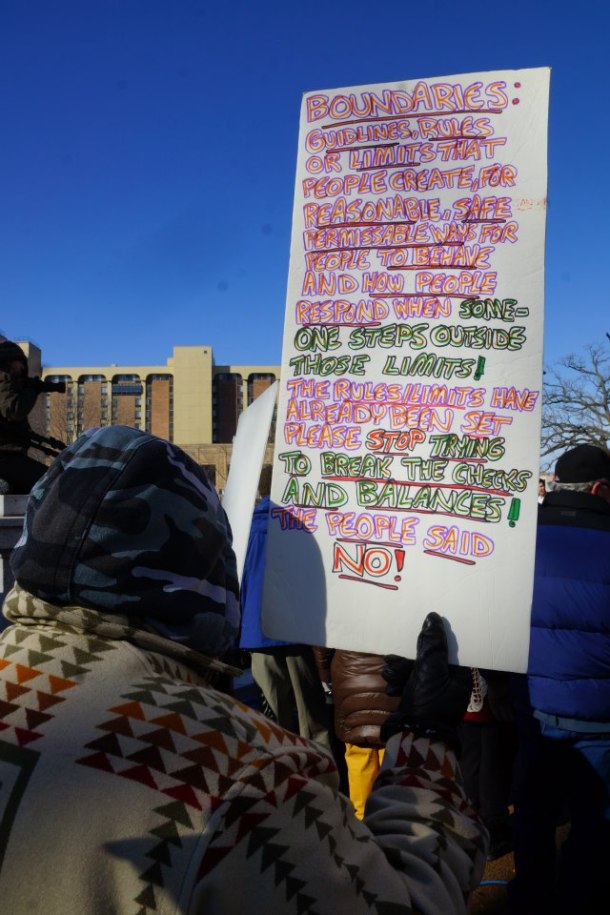 BOUNDARIES:
GUIDLINES, RULES
OR LIMITS THAT
PEOPLE CREATE, FOR
REASONABLE, SAFE
PERMISSABLE WAYS FOR
PEOPLE TO BEHAVE
AND HOW PEOPLE
RESPOND WHEN SOME-
ONE STEPS OUTSIDE
THOSE LIMITS!
THE RULES/LIMITS HAVE
ALREADY BEEN SET
PLEASE STOP TRYING
TO BREAK THE CHECKS
AND BALANCES!
THE PEOPLE SAID
NO!